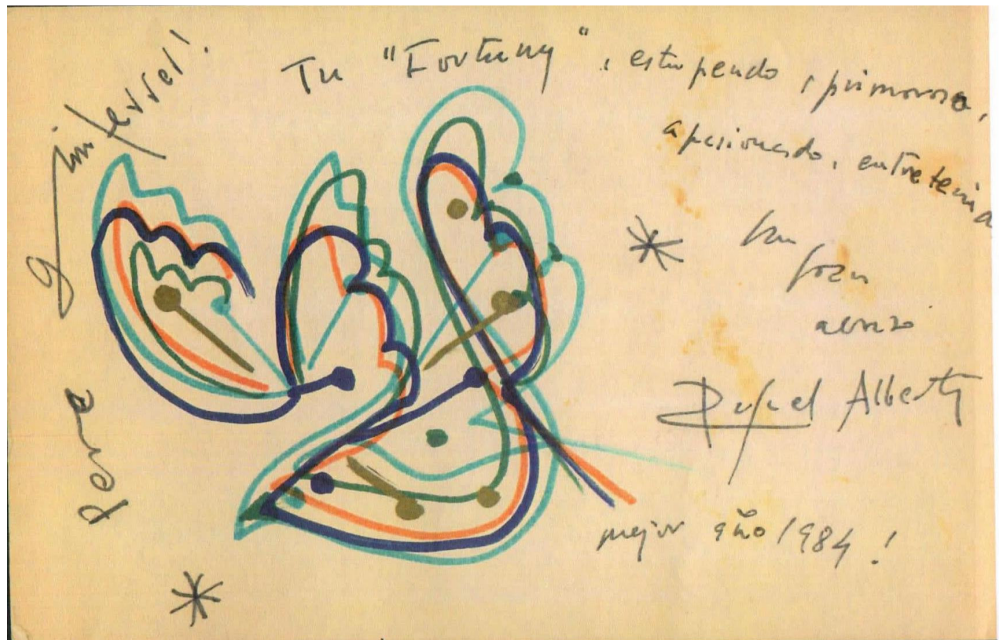 Pere Gimferrer!
Tu "Fortuny", estupendo, primoroso,
apasionado, entretenido
Un
gran
abrazo
Rafael Alberti
mejor año 1984!